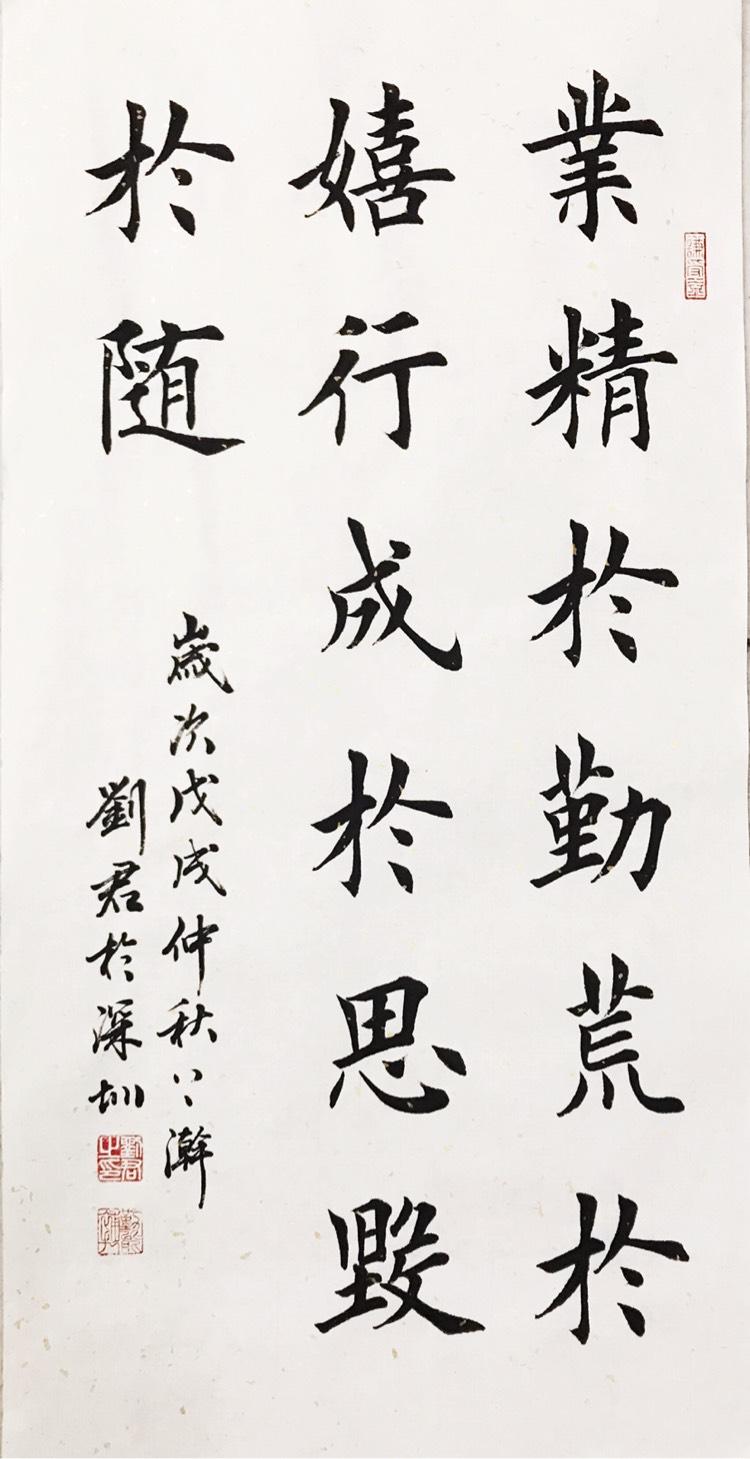 業精於勤荒於
嬉行成於思毀
於随
歲次戊戌仲秋
瀚
劉君於深圳
劉君之印